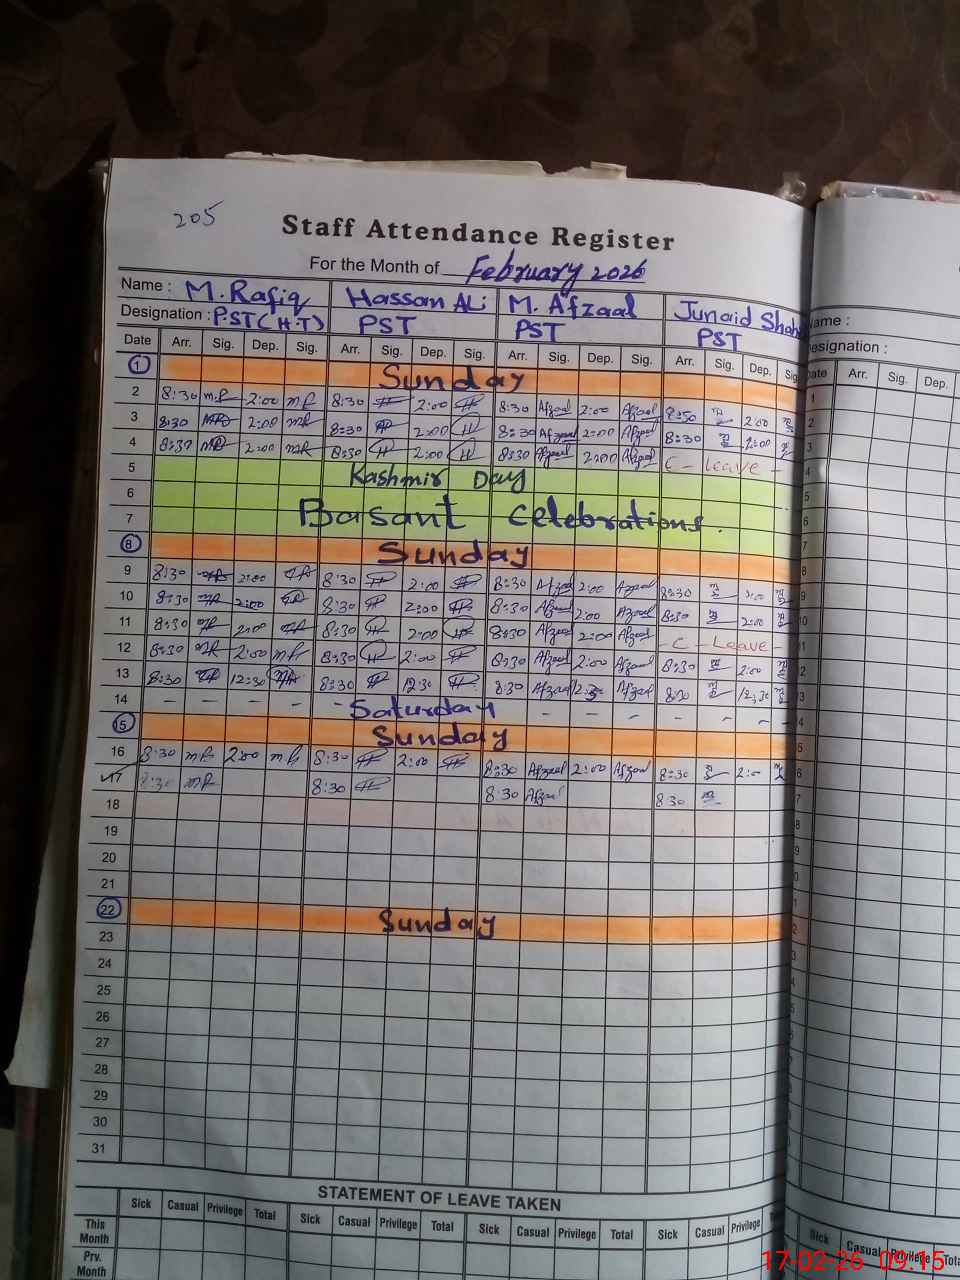 205
Staff Attendance Register
For the Month of February 2026
Name : M.Rafiq Hassan ALi M. Afzaal Junaid Shah
Designation : PST(H.T) PST PST PST
Date Arr. Sig. Dep. Sig. Arr. Sig. Dep. Sig. Arr. Sig. Dep. Sig. Arr. Sig. Dep. Sig
1 Sunday
2 8:30 MR 2:00 MR 8:30 H 2:00 H 8:30 Afzaal 2:00 Afzaal 8:30 2:00
3 8:30 MR 2:00 MR 8:30 H 2:00 H 8:30 Afzaal 2:00 Afzaal 8:30 2:00
4 8:30 MR 2:00 MR 8:30 H 2:00 H 8:30 Afzaal 2:00 Afzaal C - Leave -
5 Kashmir Day
6
7 Basant Celebrations.
8 Sunday
9 8:30 MR 2:00 MR 8:30 H 2:00 H 8:30 Afzaal 2:00 Afzaal 8:30 2:00
10 8:30 MR 2:00 MR 8:30 H 2:00 H 8:30 Afzaal 2:00 Afzaal 8:30 2:00
11 8:30 MR 2:00 MR 8:30 H 2:00 H 8:30 Afzaal 2:00 Afzaal - C - Leave -
12 8:30 MR 2:00 MR 8:30 H 2:00 H 8:30 Afzaal 2:00 Afzaal 8:30 2:00
13 8:30 MR 12:30 MR 8:30 H 12:30 H 8:30 Afzaal Afzaal 8:30 12:30
14 - - - - - Saturday - - - - - - -
15 Sunday
16 8:30 MR 2:00 MR 8:30 H 2:00 H 8:30 Afzaal 2:00 Afzaal 8:30 2:00
17 8:30 MR 8:30 H 8:30 Afzaal 8:30
18
19
20
21
22 Sunday
23
24
25
26
27
28
29
30
31
STATEMENT OF LEAVE TAKEN
Sick Casual Privilege Total Sick Casual Privilege Total Sick Casual Privilege Total Sick Casual Privilege
This Month
Prv. Month
Name :
Designation :
Date Arr. Sig. Dep.
1
2
3
4
5
6
7
8
9
10
11
12
13
Sick Casual Privilege Tota
17-02-26 09:15